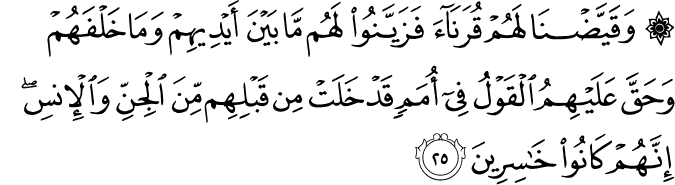 ۞ وَقَيَّضۡنَا لَهُمۡ قُرَنَآءَ فَزَيَّنُواْ لَهُم مَّا بَيۡنَ أَيۡدِيهِمۡ وَمَا خَلۡفَهُمۡ
وَحَقَّ عَلَيۡهِمُ ٱلۡقَوۡلُ فِيٓ أُمَمٖ قَدۡ خَلَتۡ مِن قَبۡلِهِم مِّنَ ٱلۡجِنِّ وَٱلۡإِنسِۖ
إِنَّهُمۡ كَانُواْ خَٰسِرِينَ ٢٥